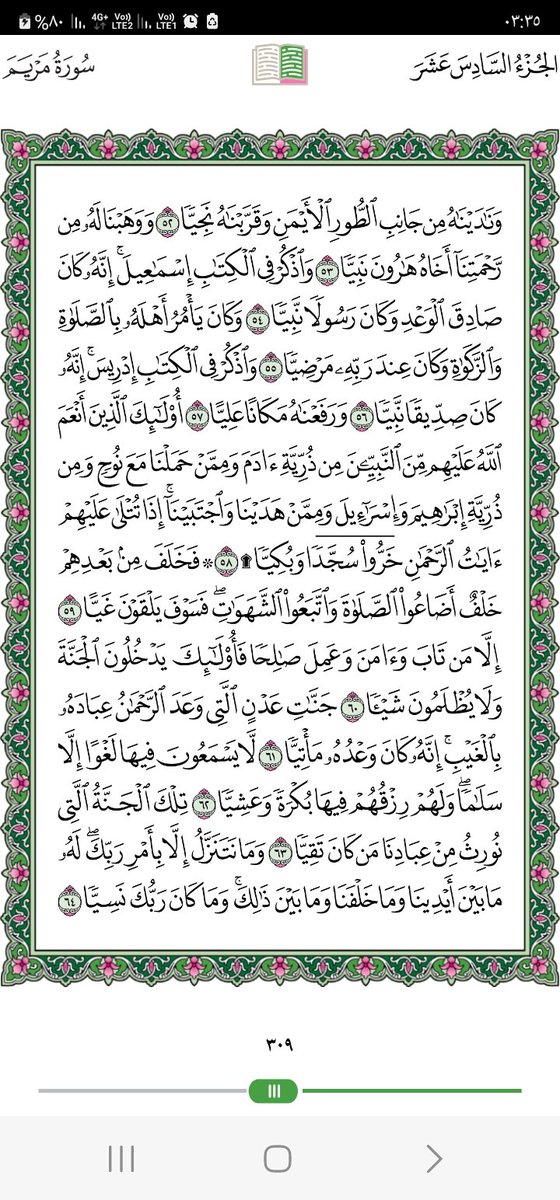 ٠٣:٣٥
%٨٠ 4G+ Vo)) LTE2 Vo)) LTE1
الجُزْءُ السَّادِسَ عَشَرَ
سُورَةُ مَرْيَمَ
وَنَٰدَيْنَٰهُ مِن جَانِبِ ٱلطُّورِ ٱلْأَيْمَنِ وَقَرَّبْنَٰهُ نَجِيًّا ٥٢ وَوَهَبْنَا لَهُۥ مِن
رَّحْمَتِنَآ أَخَاهُ هَٰرُونَ نَبِيًّا ٥٣ وَٱذْكُرْ فِي ٱلْكِتَٰبِ إِسْمَٰعِيلَۚ إِنَّهُۥ كَانَ
صَادِقَ ٱلْوَعْدِ وَكَانَ رَسُولًا نَّبِيًّا ٥٤ وَكَانَ يَأْمُرُ أَهْلَهُۥ بِٱلصَّلَوٰةِ
وَٱلزَّكَوٰةِ وَكَانَ عِندَ رَبِّهِۦ مَرْضِيًّا ٥٥ وَٱذْكُرْ فِي ٱلْكِتَٰبِ إِدْرِيسَۚ إِنَّهُۥ
كَانَ صِدِّيقًا نَّبِيًّا ٥٦ وَرَفَعْنَٰهُ مَكَانًا عَلِيًّا ٥٧ أُو۟لَٰٓئِكَ ٱلَّذِينَ أَنْعَمَ
ٱللَّهُ عَلَيْهِم مِّنَ ٱلنَّبِيِّـۧنَ مِن ذُرِّيَّةِ ءَادَمَ وَمِمَّنْ حَمَلْنَا مَعَ نُوحٍ وَمِن
ذُرِّيَّةِ إِبْرَٰهِيمَ وَإِسْرَٰٓءِيلَ وَمِمَّنْ هَدَيْنَا وَٱجْتَبَيْنَآۚ إِذَا تُتْلَىٰ عَلَيْهِمْ
ءَايَٰتُ ٱلرَّحْمَٰنِ خَرُّوا۟ سُجَّدًا وَبُكِيًّا ۩ ٥٨ ۞ فَخَلَفَ مِنۢ بَعْدِهِمْ
خَلْفٌ أَضَاعُوا۟ ٱلصَّلَوٰةَ وَٱتَّبَعُوا۟ ٱلشَّهَوَٰتِۖ فَسَوْفَ يَلْقَوْنَ غَيًّا ٥٩
إِلَّا مَن تَابَ وَءَامَنَ وَعَمِلَ صَٰلِحًا فَأُو۟لَٰٓئِكَ يَدْخُلُونَ ٱلْجَنَّةَ
وَلَا يُظْلَمُونَ شَيْـًٔا ٦٠ جَنَّٰتِ عَدْنٍ ٱلَّتِي وَعَدَ ٱلرَّحْمَٰنُ عِبَادَهُۥ
بِٱلْغَيْبِۚ إِنَّهُۥ كَانَ وَعْدُهُۥ مَأْتِيًّا ٦١ لَّا يَسْمَعُونَ فِيهَا لَغْوًا إِلَّا
سَلَٰمًاۖ وَلَهُمْ رِزْقُهُمْ فِيهَا بُكْرَةً وَعَشِيًّا ٦٢ تِلْكَ ٱلْجَنَّةُ ٱلَّتِي
نُورِثُ مِنْ عِبَادِنَا مَن كَانَ تَقِيًّا ٦٣ وَمَا نَتَنَزَّلُ إِلَّا بِأَمْرِ رَبِّكَۖ لَهُۥ
مَا بَيْنَ أَيْدِينَا وَمَا خَلْفَنَا وَمَا بَيْنَ ذَٰلِكَۚ وَمَا كَانَ رَبُّكَ نَسِيًّا ٦٤
٣٠٩